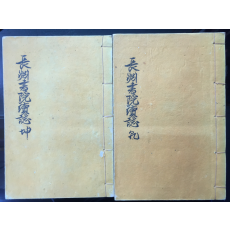 長淵書院續誌 乾
長淵書院續誌 坤